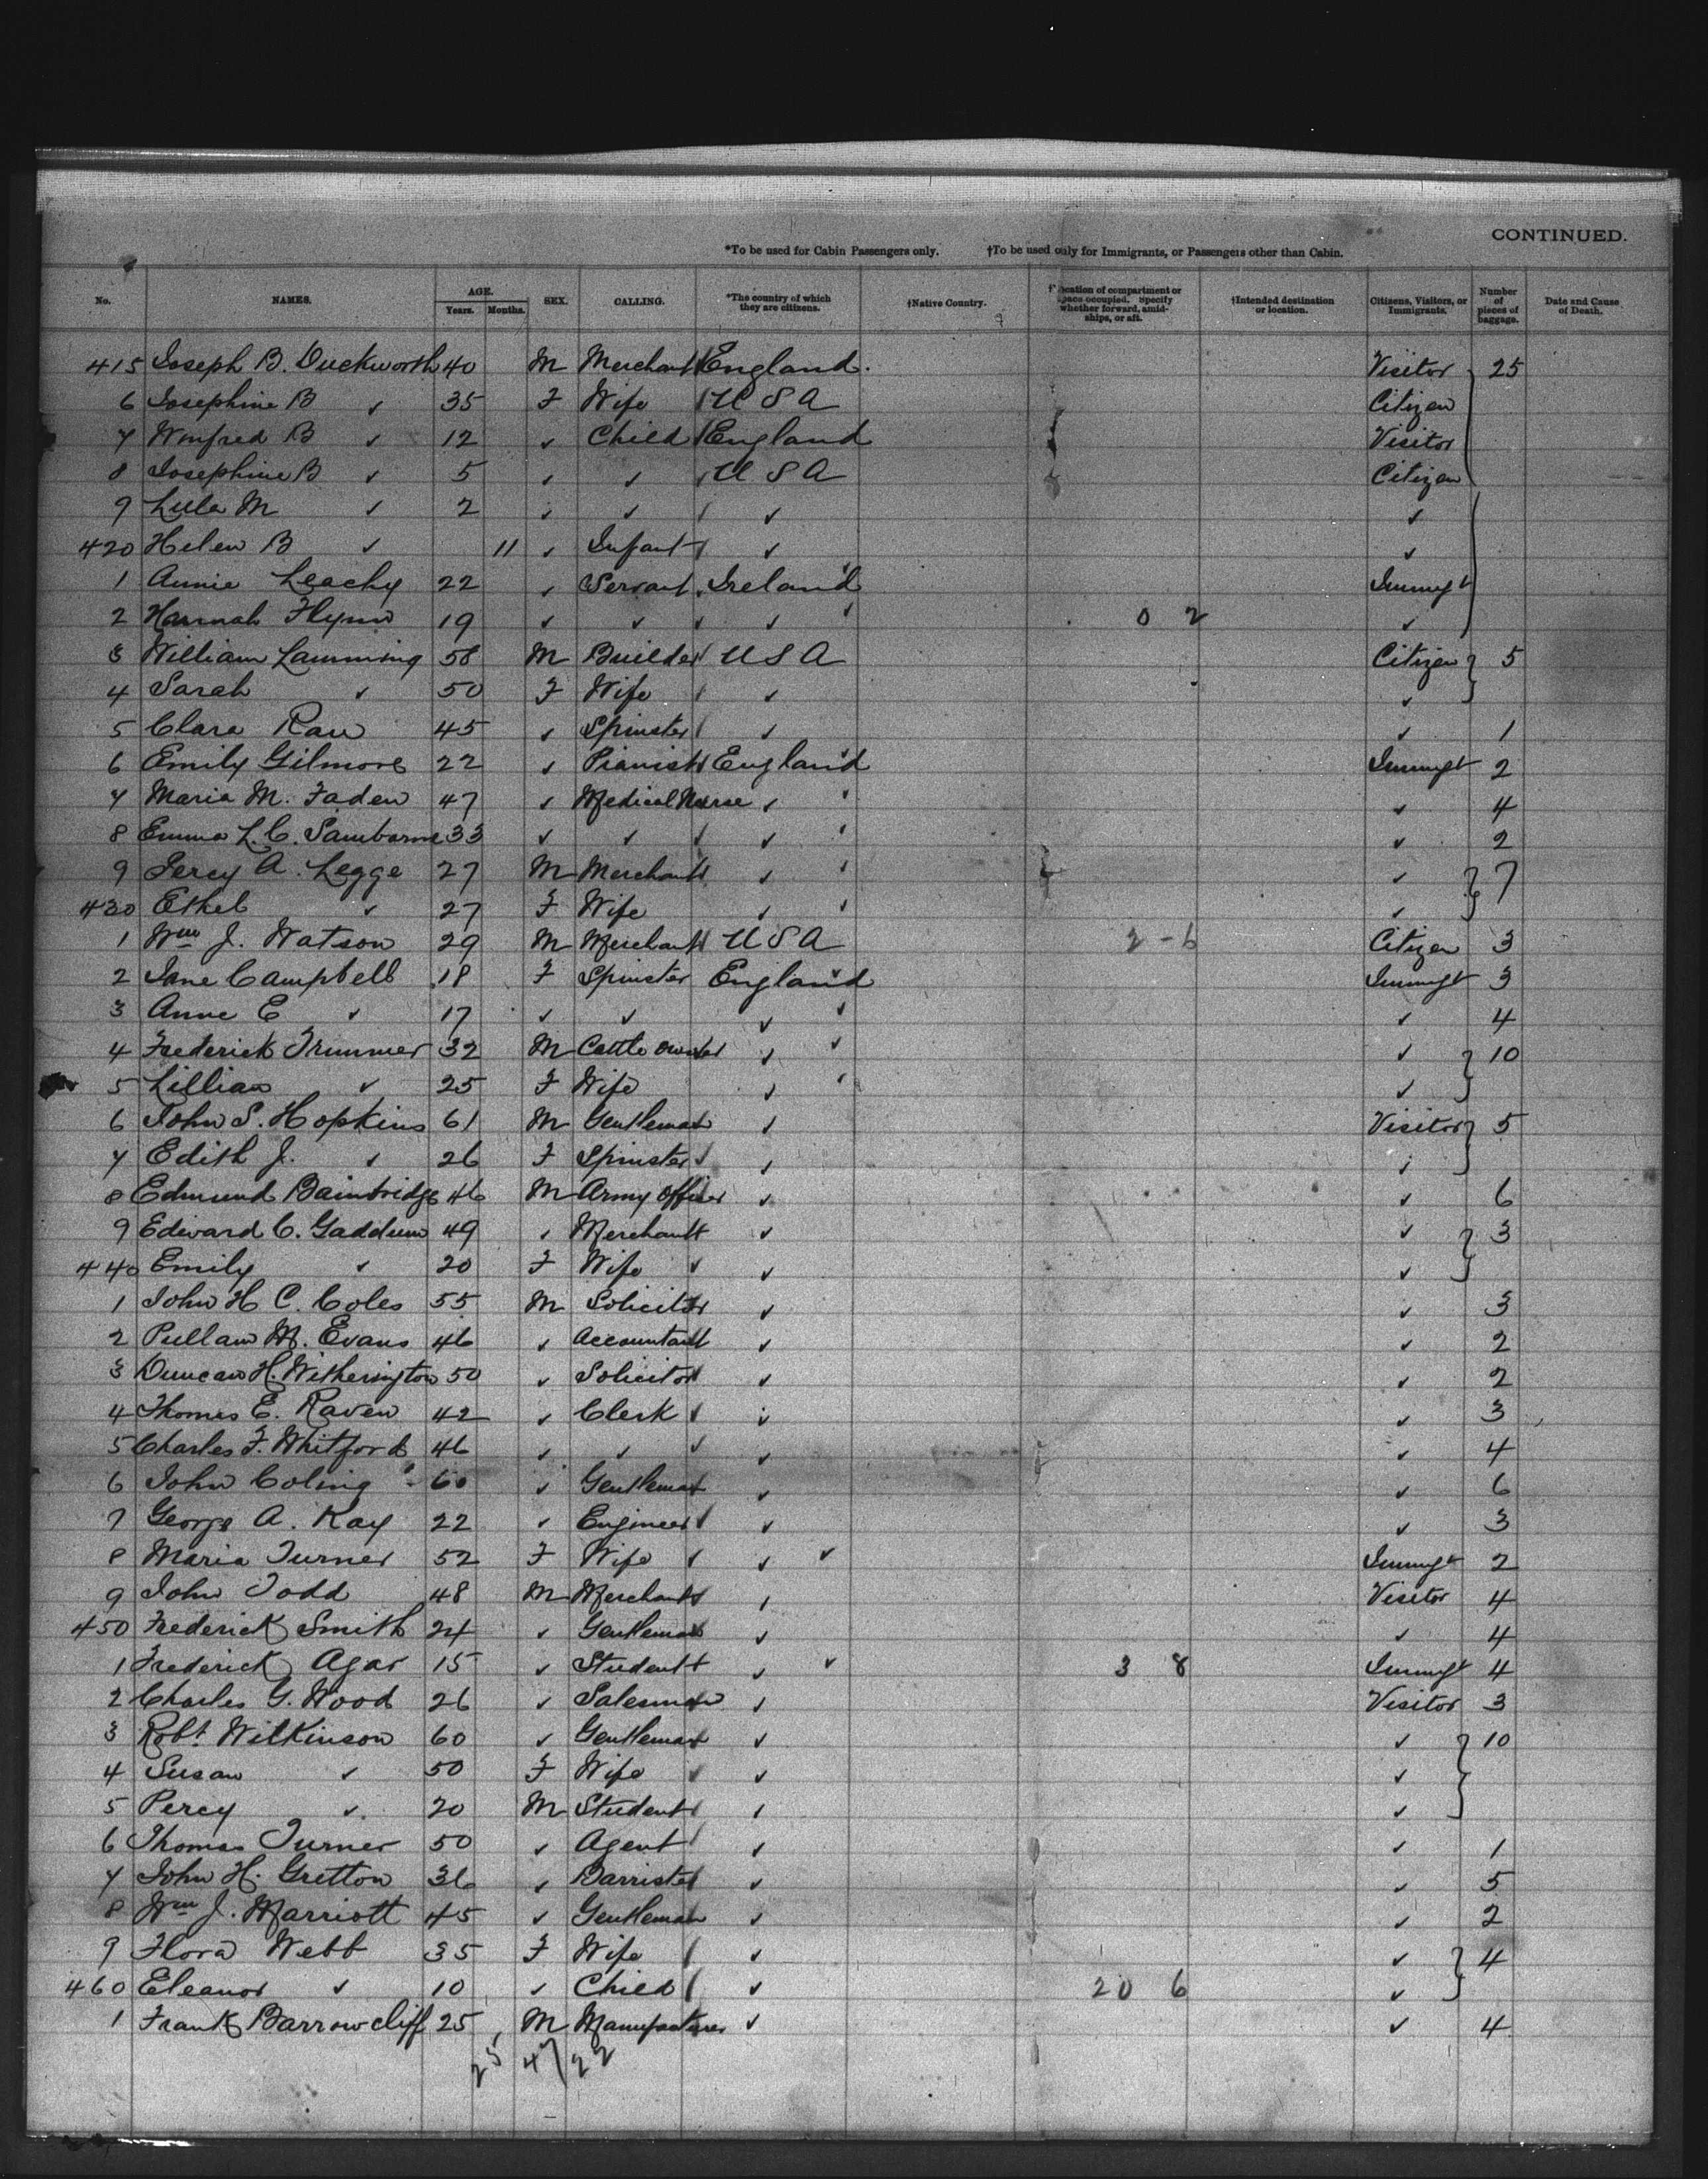 CONTINUED.
*To be used for Cabin Passengers only. †To be used only for Immigrants, or Passengers other than Cabin.
No. NAMES. AGE. Years. Months. SEX. CALLING. *The country of which they are citizens. †Native Country. †Location of compartment or space occupied. Specify whether forward, amidships, or aft. †Intended destination or location. Citizens, Visitors, or Immigrants. Number of pieces of baggage. Date and Cause of Death.
415 Joseph B. Duckworth 40 M Merchant England. Visitor 25
6 Josephine B ✓ 35 F Wife U S A Citizen
7 Winfred B ✓ 12 ✓ Child England Visitor
8 Josephine B ✓ 5 ✓ ✓ U S A Citizen
9 Lula M ✓ 2 ✓ ✓ ✓ ✓
420 Helen B ✓ 11 ✓ Infant ✓ ✓
1 Annie Leachy 22 ✓ Servant Ireland Immgt
2 Hannah Flynn 19 ✓ ✓ ✓ 0 2 ✓
3 William Lamming 58 M Builder U S A Citizen 5
4 Sarah ✓ 50 F Wife ✓ ✓
5 Clara Raw 45 ✓ Spinster ✓ ✓ 1
6 Emily Gilmore 22 ✓ Pianist England Immgt 2
7 Maria M. Faden 47 ✓ Medical Nurse ✓ ✓ 4
8 Emma L. C. Samborne 33 ✓ ✓ ✓ ✓ 2
9 Percy A. Legge 27 M Merchant ✓ ✓ 7
430 Ethel ✓ 27 F Wife ✓ ✓
1 Wm J. Watson 29 M Merchant U S A 2-6 Citizen 3
2 Jane Campbell 18 F Spinster England Immgt 3
3 Anne E ✓ 17 ✓ ✓ ✓ ✓ 4
4 Frederick Trimmer 32 M Cattle owner ✓ ✓ 10
5 Lillian ✓ 25 F Wife ✓ ✓
6 John S. Hopkins 61 M Gentleman ✓ Visitor 5
7 Edith J. ✓ 26 F Spinster ✓ ✓
8 Edmund Bainbridge 46 M Army Officer ✓ ✓ 6
9 Edward C. Gaddum 49 ✓ Merchant ✓ ✓ 3
440 Emily ✓ 20 F Wife ✓ ✓
1 John H C. Coles 55 M Solicitor ✓ ✓ 3
2 Pullam M. Evans 46 ✓ Accountant ✓ ✓ 2
3 Duncan H. Witherington 50 ✓ Solicitor ✓ ✓ 2
4 Thomas E. Raven 42 ✓ Clerk ✓ ✓ 3
5 Charles F. Whitford 46 ✓ ✓ ✓ ✓ 4
6 John Coling 60 ✓ Gentleman ✓ ✓ 6
7 George A. Kay 22 ✓ Engineer ✓ ✓ 3
8 Maria Turner 52 F Wife ✓ ✓ Immgt 2
9 John Todd 48 M Merchant ✓ Visitor 4
450 Frederick Smith 24 ✓ Gentleman ✓ ✓ 4
1 Frederick Agar 15 ✓ Student ✓ ✓ 3 8 Immgt 4
2 Charles G. Wood 26 ✓ Salesman ✓ Visitor 3
3 Robt. Wilkinson 60 ✓ Gentleman ✓ ✓ 10
4 Susan ✓ 50 F Wife ✓ ✓
5 Percy ✓ 20 M Student ✓ ✓
6 Thomas Turner 50 ✓ Agent ✓ ✓ 1
7 John H. Gretton 36 ✓ Barrister ✓ ✓ 5
8 Wm J. Marriott 45 ✓ Gentleman ✓ ✓ 2
9 Flora Webb 35 F Wife ✓ ✓ 4
460 Eleanor ✓ 10 ✓ Child ✓ 20 6 ✓
1 Frank Barrowcliff 25 M Manufacturer ✓ ✓ 4
25 47/22